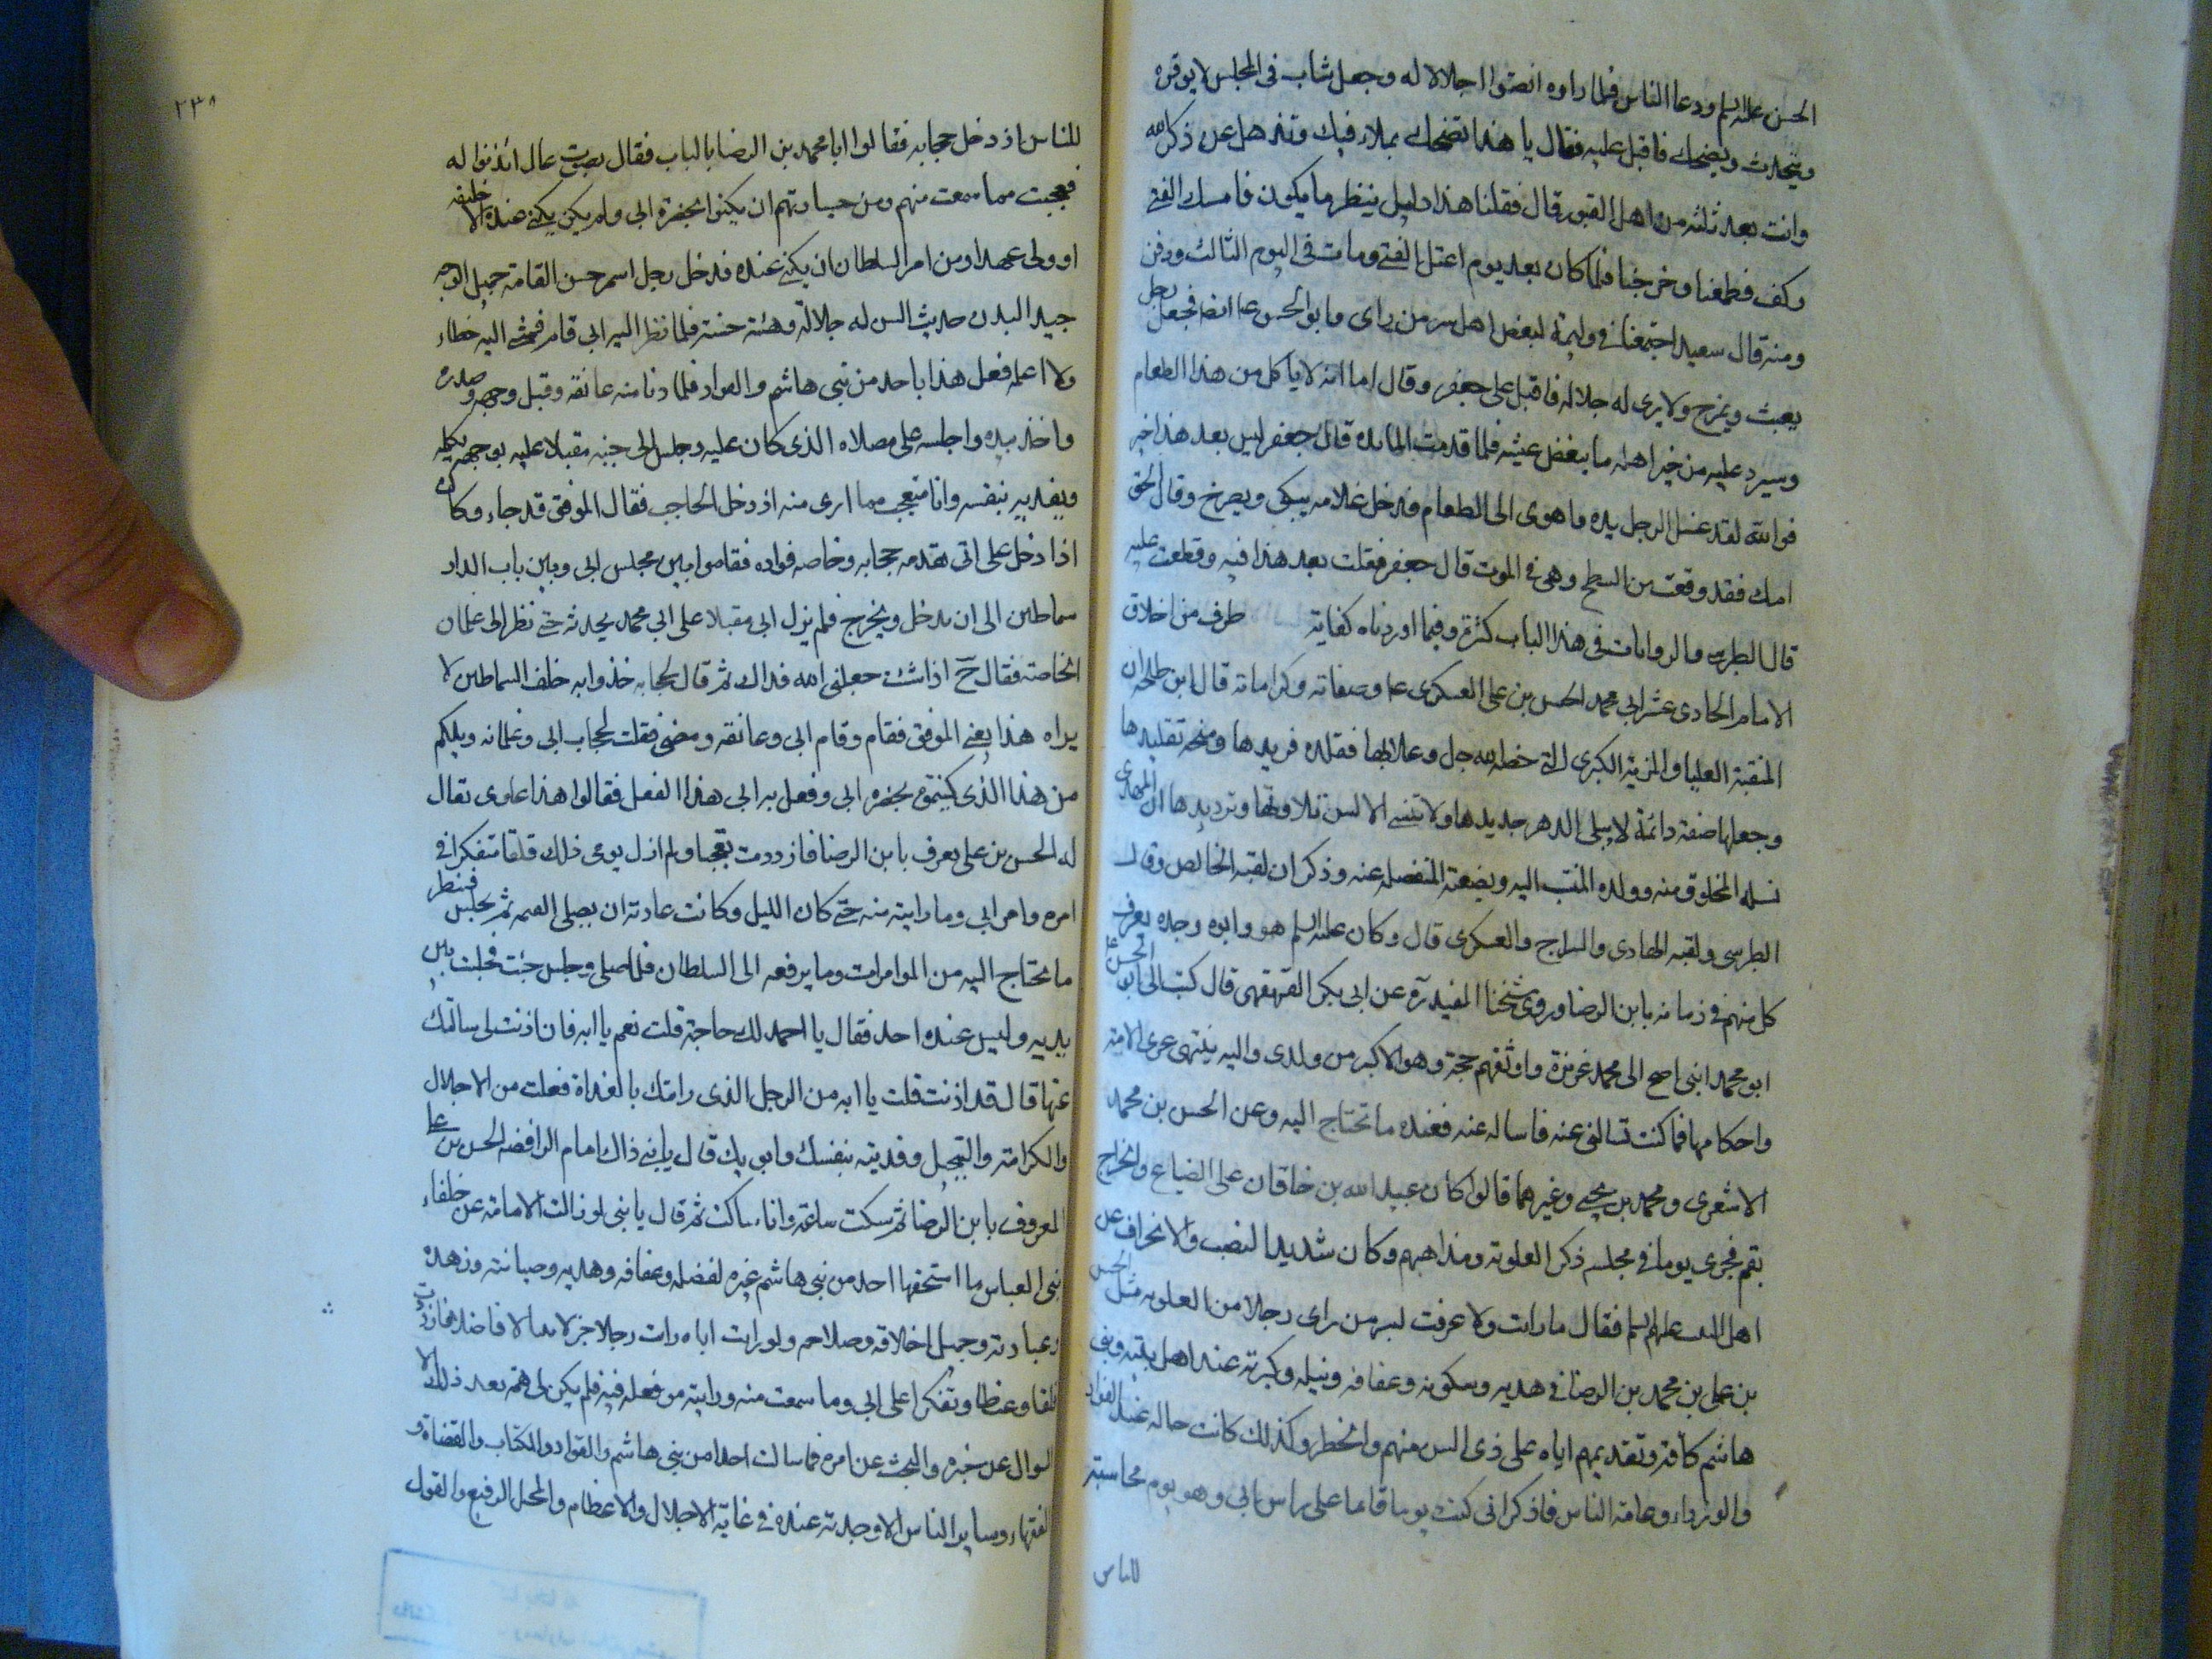 الحسن عليه السلم ودعا الناس فلما راوه انصتوا اجلالا له وجعل شاب فى المجلس لا يوقره
ويتحدث ويضحك فاقبل عليه فقال يا هذا تضحك بملاء فيك وتذهل عن ذكر الله
وانت بعد ثلثه من اهل القبور قال فقلنا هذا دليل ينظر ما يكون فامسك الفتى
وكف فطعمنا وخرجنا فلما كان بعد يوم اعتل الفتى ومات فى اليوم الثالث ودفن
ومنه قال سعيد اجتمعنا فى وليمة لبعض اهل سر من راى وابو الحسن فجعل رجل
يعبث ويمزح ولا يرى له جلالة فاقبل على جعفر وقال اما انه لا ياكل من هذا الطعام
وسيرد عليه من خبر اهله ما ينغص عيشه فلما قدمت المائده قال جعفر ليس بعد هذا خبر
فوالله لقد غسل الرجل يده واهوى الى الطعام فدخل غلامه يبكى ويصرخ وقال الحق
امك فقد وقعت من السطح وهى فى الموت قال جعفر فقلت بعد هذا فيه وقطعت عليه
قال الطبرسى والروايات فى هذا الباب كثرة وفيما اوردناه كفاية طرف من اخلاق
الامام الحادى عشر ابى محمد الحسن بن على العسكرى عا وصفاته وكراماته قال ابن طلحة ان
المنقبة العليا والمزية الكبرى التى خصه الله جل وعلا بها فقلده فريدها ومنحه تقليدها
وجعلها صفة دائمة لا يبلى الدهر جديدها ولا تنسى الالسن تلاوتها وترديدها ان المهدى
نسله المخلوق منه وولده المنتسب اليه وبضعته المنفصله عنه وذكر ان لقبه الخالص وقال
الطبرسى ولقبه الهادى والسراج والعسكرى قال وكان عليه السلم هو وابوه وجده يعرف
كل منهم فى زمانه بابن الرضا وروى شيخنا المفيد ره عن ابى بكر الفهفهى قال كتب الى ابو الحسن عا
ابو محمد ابنى اصح ال محمد غريزة واوثقهم حجة وهو الاكبر من ولدى واليه ينتهى عرى الامامة
واحكامها فما كنت تسالنى عنه فاساله عنه فعنده ما تحتاج اليه وعن الحسن بن محمد
الاشعرى ومحمد بن يحيى وغيرهما قالوا كان عبيد الله بن خاقان على الضياع والخراج
بقم فجرى يوما فى مجلسه ذكر العلوية ومذاهبهم وكان شديد النصب والانحراف عن
اهل البيت عليهم السلم فقال ما رايت ولا عرفت بسر من راى رجلا من العلويه مثل الحسن
بن على بن محمد بن الرضا فى هديه وسكونه وعفافه ونبله وكبرته عند اهل بيته وبنى
هاشم كافة وتقديمهم اياه على ذى السن منهم والخطر وكذلك كانت حاله عند القواد
والوزراء وعامة الناس فاذكر انى كنت يوما قائما على راس ابى وهو يوم مجلسه
للناس
٢٣٨
للناس اذ دخل حجابه فقالوا ابا محمد بن الرضا بالباب فقال بصوت عال ائذنوا له
فعجبت مما سمعت منهم ومن جسارتهم ان يكنوا بحضرة ابى ولم يكن يكنى عنده الا خليفه
او ولى عهد او من امر السلطان ان يكنى عنده فدخل رجل اسمر حسن القامة جميل الوجه
جيد البدن حديث السن له جلالة وهيئة حسنة فلما نظر اليه ابى قام فمشى اليه خطاء
ولا اعلمه فعل هذا باحد من بنى هاشم والقواد فلما دنا منه عانقه وقبل وجهه وصدره
واخذ بيده واجلسه على مصلاه الذى كان عليه وجلس الى جنبه مقبلا عليه بوجهه يكلمه
ويفديه بنفسه وانا متعجب مما ارى منه اذ دخل الحاجب فقال الموفق قد جاء وكان
اذا دخل على ابى تقدمه حجابه وخاصه قواده فقاموا بين مجلس ابى وبين باب الدار
سماطين الى ان يدخل ويخرج فلم يزل ابى مقبلا على ابى محمد يحدثه حتى نظر الى غلمان
الخاصة فقال ح اذا شئت جعلنى الله فداك ثم قال لحجابه خذوا به خلف السماطين لا
يراه هذا يعنى الموفق فقام وقام ابى وعانقه ومضى فقلت لحجاب ابى وغلمانه ويلكم
من هذا الذى كنيتموه بحضره ابى وفعل به ابى هذا الفعل فقالوا هذا علوى يقال
له الحسن بن على يعرف بابن الرضا فازددت تعجبا ولم ازل يومى ذلك قلقا متفكرا فى
امره وامر ابى وما رايته منه حتى كان الليل وكانت عادته ان يصلى العتمه ثم يجلس فينظر
ما يحتاج اليه من الموامرات وما يرفعه الى السلطان فلما صلى وجلس جئت فجلست بين
يديه وليس عنده احد فقال يا احمد لك حاجة قلت نعم يا ابه فان اذنت لى سالتك
عنها قال قد اذنت قلت يا ابه من الرجل الذى رايتك بالغداة فعلت من الاجلال
والكرامة والتبجيل وفديته بنفسك وابويك قال يا بنى ذاك امام الرافضه الحسن بن على
المعروف بابن الرضا ثم سكت ساعة وانا ساكت ثم قال يا بنى لو زالت الامامة عن خلفاء
بنى العباس ما استحقها احد من بنى هاشم غيره لفضله وعفافه وهديه وصيانته وزهده
وعبادته وجميل اخلاقه وصلاحه ولو رايت اباه رايت رجلا جزلا نبيلا فاضلا فازددت
قلقا وغيظا وتفكرا على ابى وما سمعت منه ورايته من فعله فيه فلم يكن لى همة بعد ذلك الا
السوال عن خبره والبحث عن امره فما سالت احدا من بنى هاشم والقواد والكتاب والقضاة و
الفقهاء وساير الناس الا وجدته عنده فى غاية الاجلال والاعظام والمحل الرفيع والقول